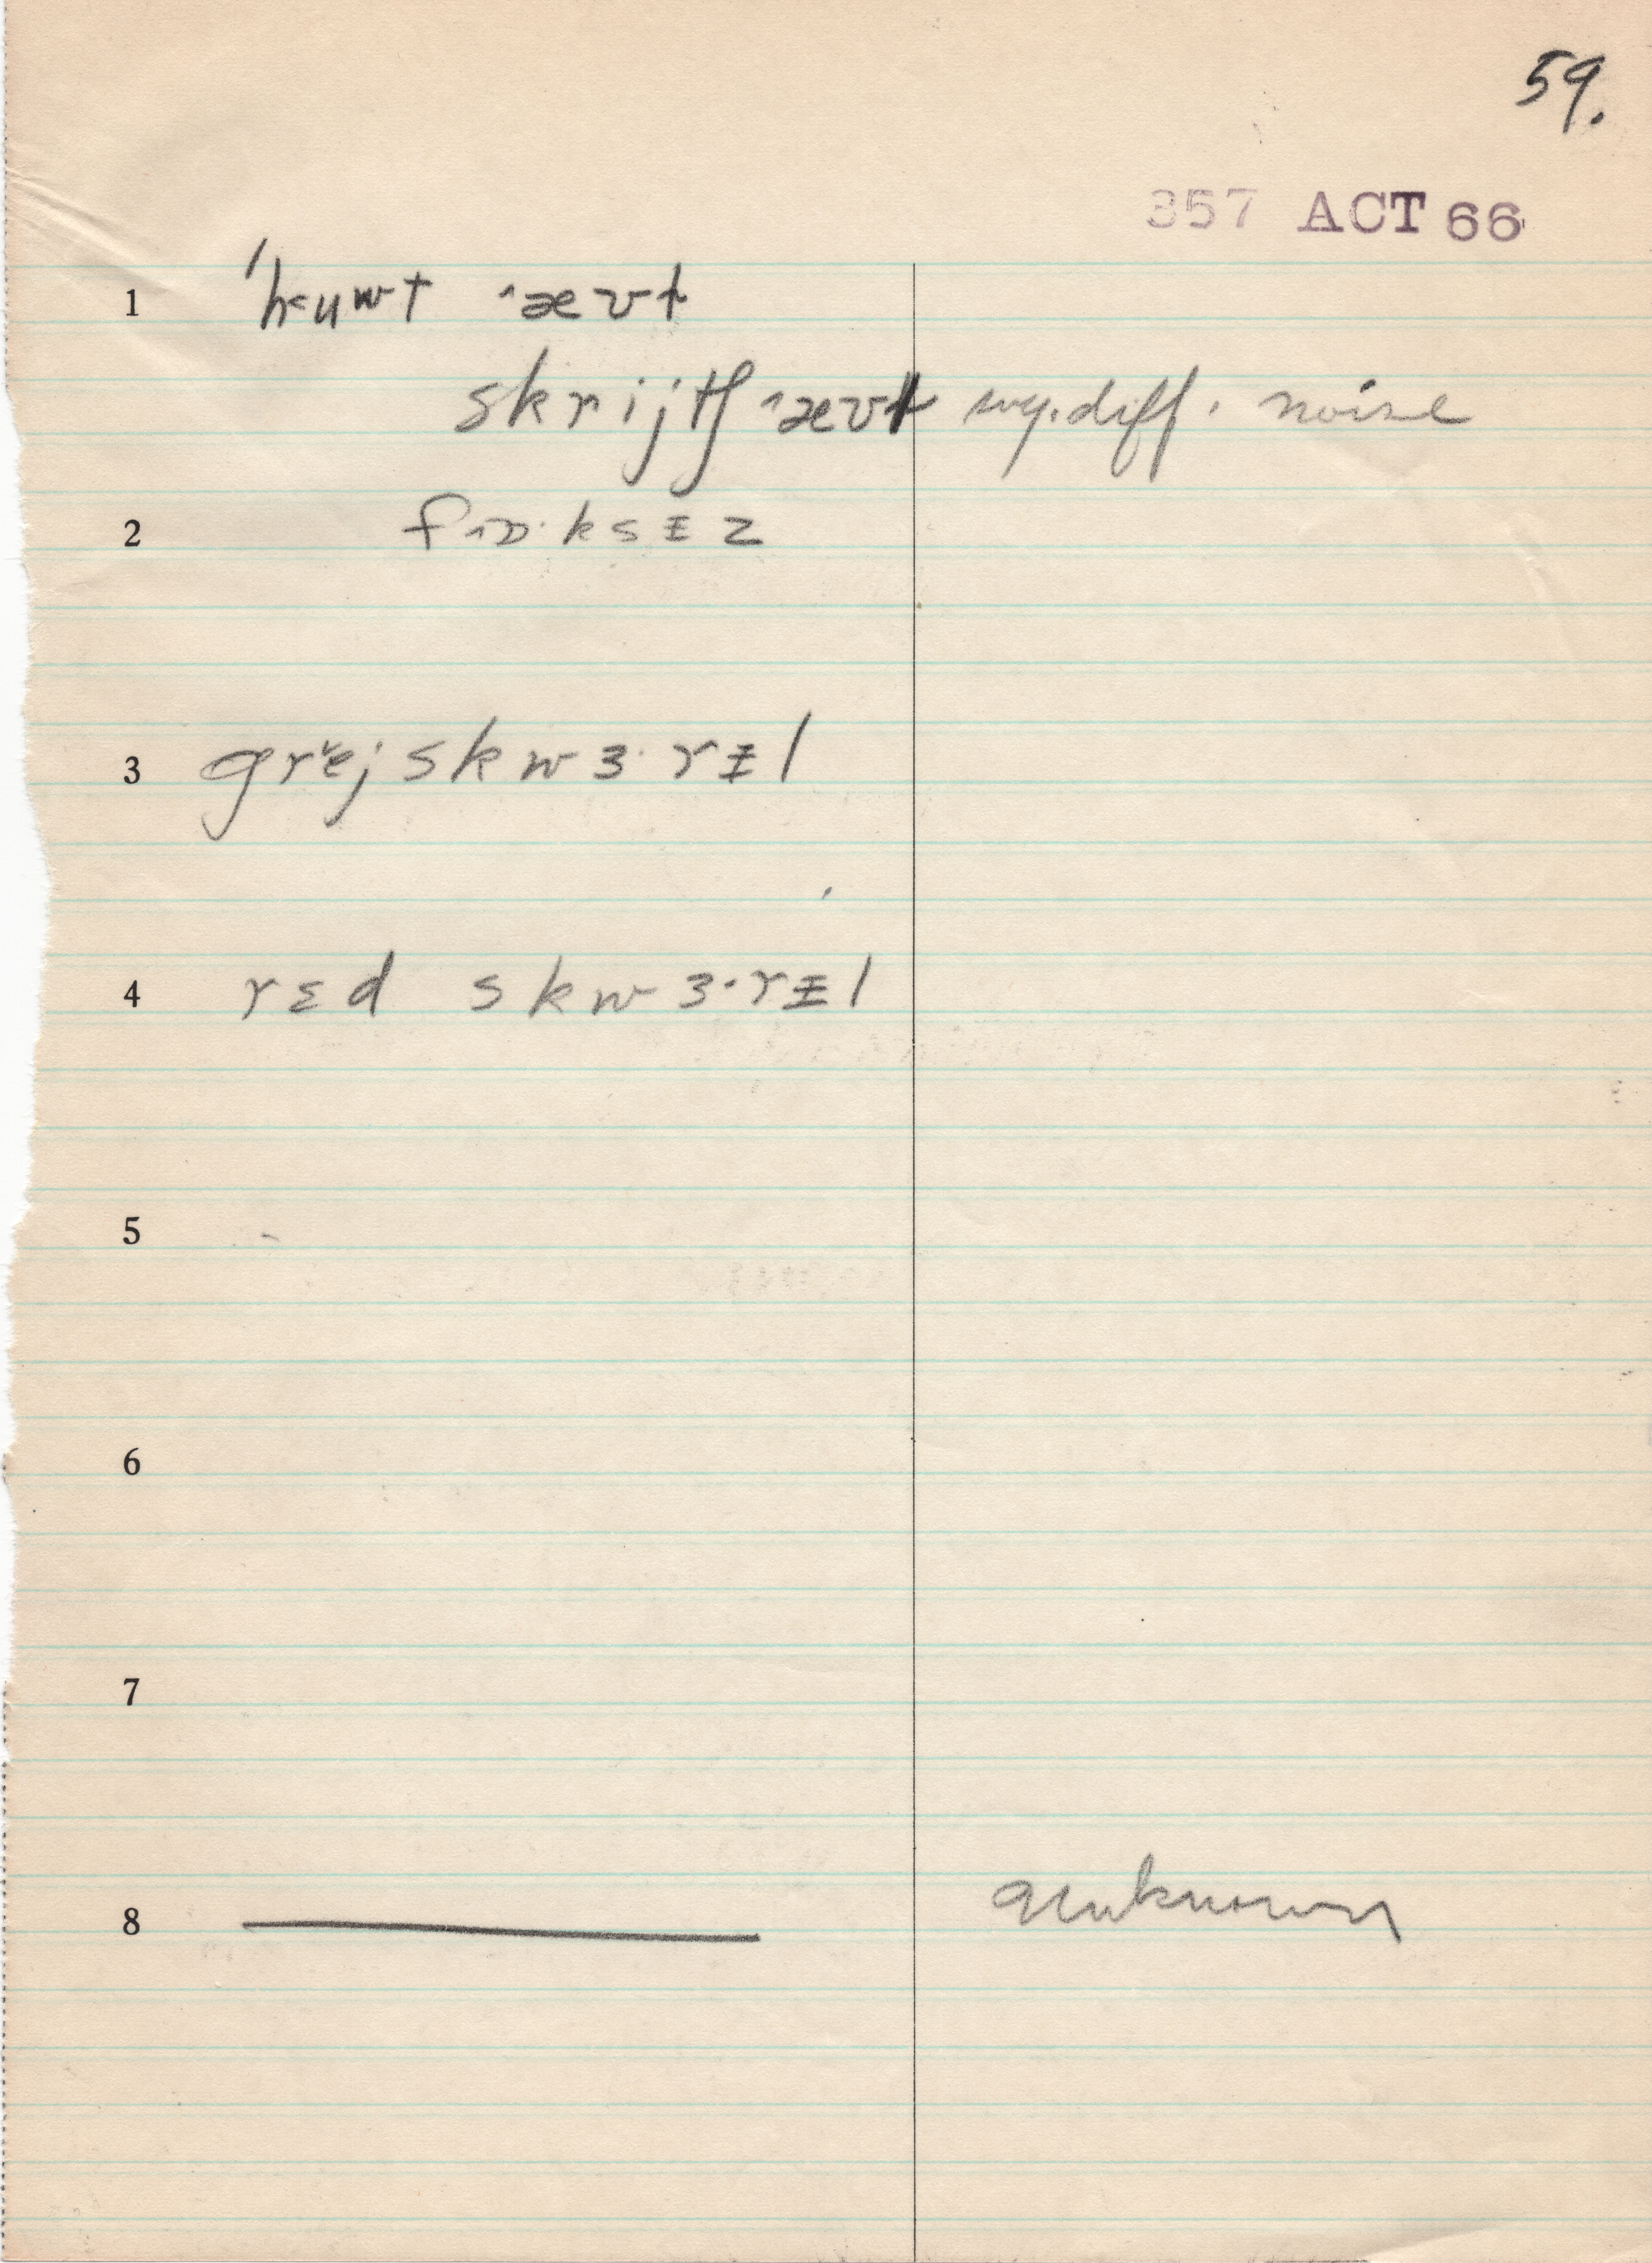 59.
357 ACT 66
1 'h<uwt ˄ævt
skrijtʃ ˄ævt sng. diff. noise
2 f˄ɒ·ksɪz
3 gr˅ejskwɜ·rɪl
4 rɛd skwɜ·rɪl
5
6
7
8 unknown